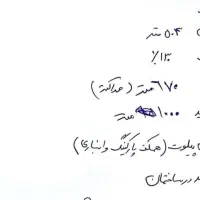 ۵۰۴ متر
۱۳۰٪
۶۷۰ متر (حداکثر)
۱۰۰۰ متر
پیلوت (همکف پارکینگ و انباری)
در ساختمان